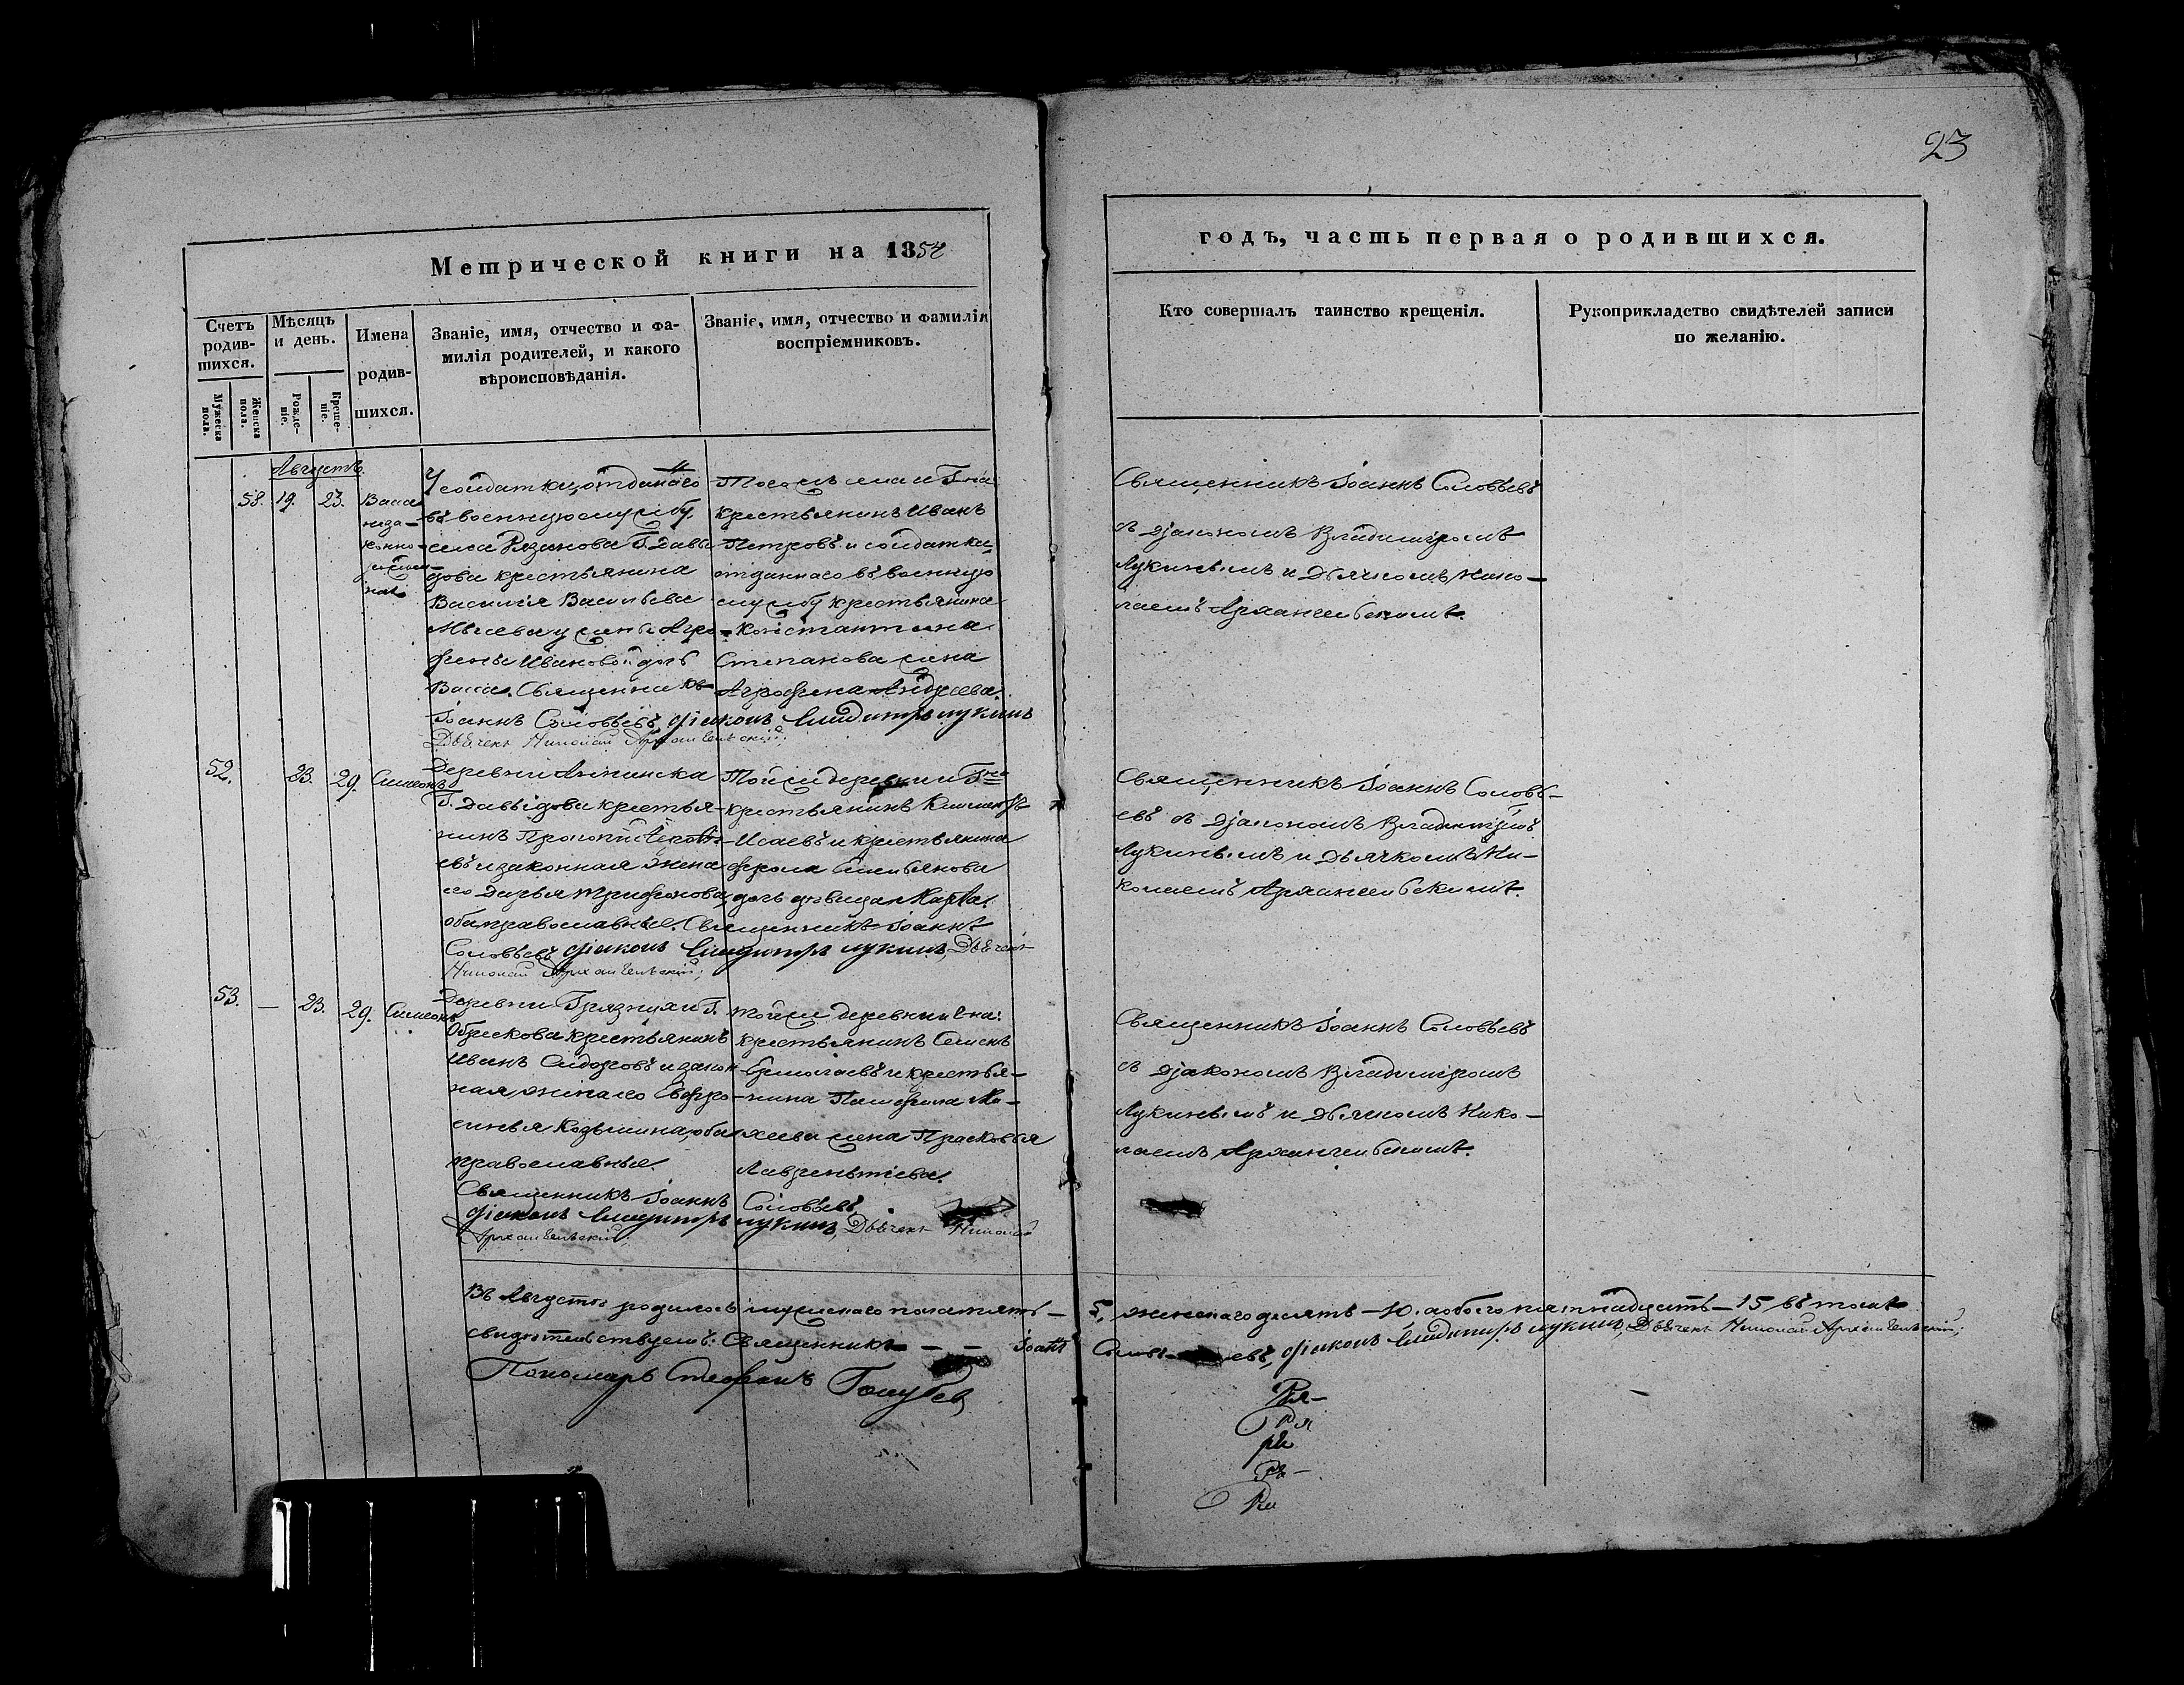 23
Метрической книги на 1854
годъ, часть первая о родившихся.
Счетъ родив-шихся.
Мѣсяцъ и день.
Имена родив-шихся.
Званіе, имя, отчество и фа-
милія родителей, и какого
вѣроисповѣданія.
Званіе, имя, отчество и фамилія
воспріемниковъ.
Кто совершалъ таинство крещенія.
Рукоприкладство свидѣтелей записи
по желанію.
Мужеска пола.
Женска пола.
Рожде-ніе.
Креще-ніе.
Августъ.
58. 19. 23. Васса
неза-
конно-
У солдатки, отданаго
въ военную службу
села Рязанова Г. Давы-
дова крестьянина
Василія Васильева
жены Агра-
фены Ивановой дочь
Васса. Священникъ
Іоаннъ Соловьевъ, діаконъ Владиміръ Лукинъ
Дьячекъ Николай Архангельскій;
Того жъ села и Г-на
крестьянинъ Иванъ
Петровъ и солдатка,
отданнаго въ военную
службу крестьянина
Константина
Степанова жена
Агрофена Андреева.
Священникъ Іоаннъ Соловьевъ
съ Діакономъ Владиміромъ
Лукинымъ и Дьячкомъ Нико-
лаемъ Архангельскимъ.
52. 23. 29. Симеонъ
Деревни
Г. Давыдова крестья-
нинъ Прокопій
евъ и законная жена
его Дарья Трифонова,
оба православные. Священникъ Іоаннъ
Соловьевъ, діаконъ Владиміръ Лукинъ, Дьячекъ
Николай Архангельскій;
Той же деревни и Г-на
крестьянинъ Климентъ
Исаевъ и крестьянина
Фрола Емельянова
дочь дѣвица Марѳа.
Священникъ Іоаннъ Соловь-
евъ съ Діакономъ Владиміромъ
Лукинымъ и Дьячкомъ Ни-
колаемъ Архангельскимъ.
53. — 23. 29. Симеонъ
Деревни Грязнухи Г.
Обрескова крестьянинъ
Иванъ Сидоровъ и закон-
ная жена его Евфро-
синья Козьмина, оба
православные.
Священникъ Іоаннъ Соловьевъ,
діаконъ Владиміръ Лукинъ, Дьячекъ Николай
Архангельскій;
Той же деревни и Г-на
крестьянинъ Семенъ
Ермолаевъ и крестья-
нина Памфила Ми-
хеева жена Прасковья
Лаврентьева.
Священникъ Іоаннъ Соловьевъ
съ Діакономъ Владиміромъ
Лукинымъ и Дьячкомъ Нико-
лаемъ Архангельскимъ.
Въ Августѣ родилось мужескаго пола пять — 5, женскаго десять — 10, а обоего пятнадцать — 15 въ томъ
свидѣтельствуемъ: Священникъ — — Іоаннъ Соловьевъ, діаконъ Владиміръ Лукинъ, Дьячекъ Николай Архангельскій;
Пономарь Стефанъ Голубев